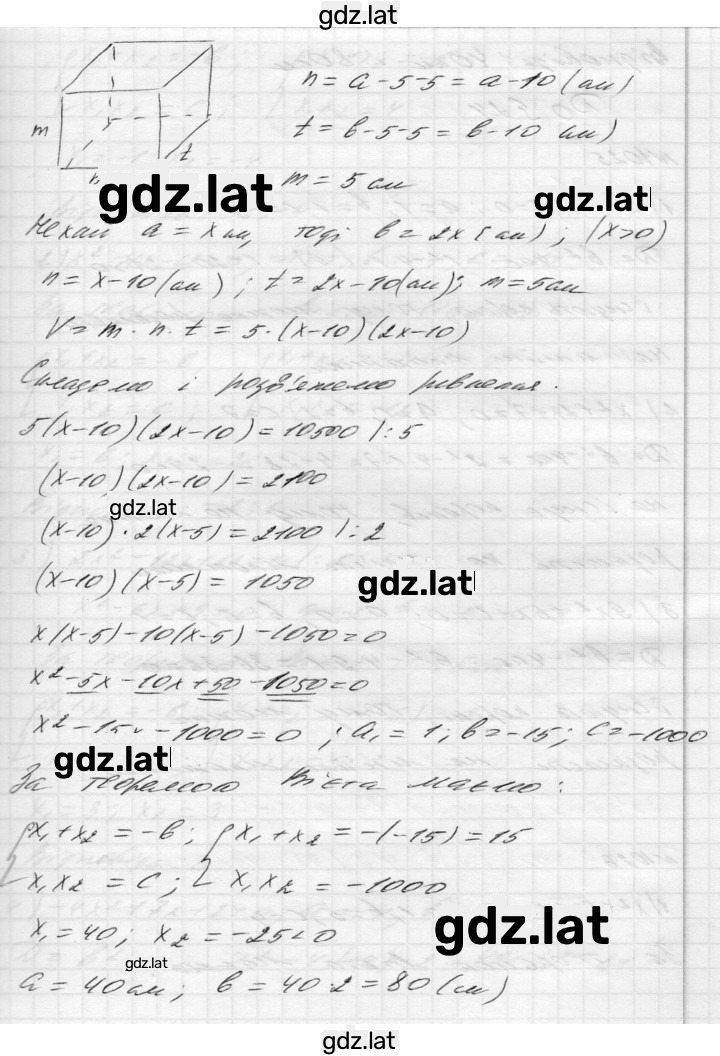 gdz.lat
n = a - 5 - 5 = a - 10 (см)
t = b - 5 - 5 = b - 10 см)
m
t
n
gdz.lat
m = 5 см
gdz.lat
Нехай a = x см, тоді b = 2x (см) ; (x>0)
n = x - 10 (см) ; t = 2x - 10 (см); m = 5 см
V = m · n · t = 5 · (x-10)(2x-10)
Складемо і розв'яжемо рівняння.
5(x-10)(2x-10) = 10500 /: 5
(x-10)(2x-10) = 2100
gdz.lat
(x-10) · 2(x-5) = 2100 /: 2
(x-10)(x-5) = 1050
gdz.lat
x(x-5) - 10(x-5) - 1050 = 0
x² - 5x - 10x + 50 - 1050 = 0
x² - 15x - 1000 = 0 ; a₁ = 1; b = -15; c = -1000
gdz.lat
За теоремою Вієта маємо:
{ x₁ + x₂ = -b ; { x₁ + x₂ = -(-15) = 15
x₁x₂ = c ; x₁x₂ = -1000
x₁ = 40; x₂ = -25 < 0
gdz.lat
gdz.lat
a = 40 см; b = 40·2 = 80 (см)
gdz.lat